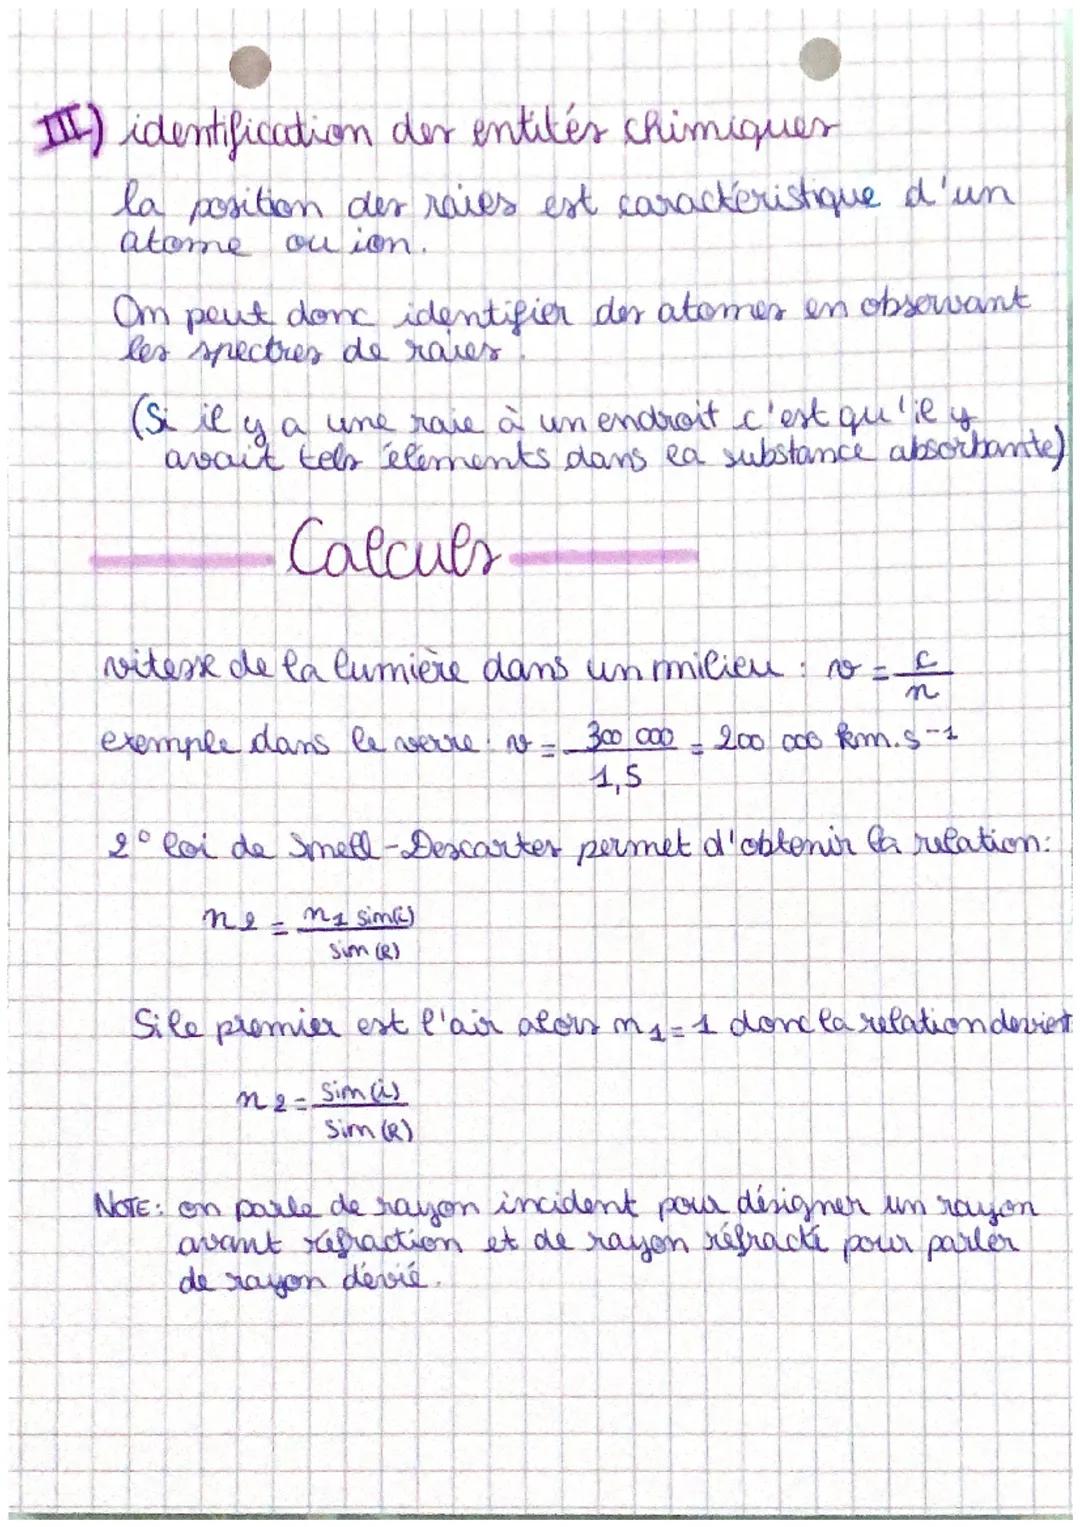 III) identification des entités chimiques
la position des raies est caractéristique d'un
atome ou ion.
On peut donc identifier des atomes en observant
les spectres de raies.
(Si il y a une raie à un endroit c'est qu'il y
avait tels éléments dans la substance absorbante)
Calculs
vitesse de la lumière dans un milieu : v = c/n
exemple dans le verre : v = 300 000/1,5 = 200 000 km.s-1
2° loi de Snell-Descartes permet d'obtenir la relation:
n2 = n1 sin(i)/sin(R)
Si le premier est l'air alors n1 = 1 donc la relation devient
n2 = sin(i)/sin(R)
NOTE: on parle de rayon incident pour désigner un rayon
avant réfraction et de rayon réfracté pour parler
de rayon dévié.